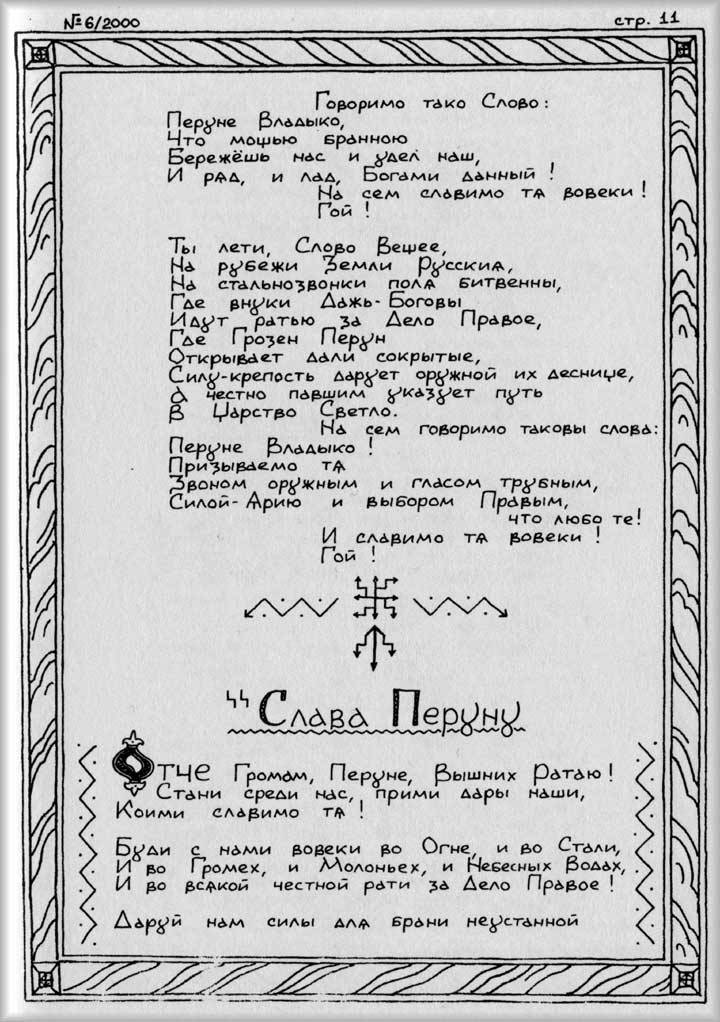 № 6/2000
стр. 11
Говоримо тако Слово:
Перуне Владыко,
Что мощью бранною
Бережёшь нас и удел наш,
И рѧд, и лад, Богами данный!
На сем славимо тѧ вовеки!
Гой!
Ты лети, Слово Вещее,
На рубежи Земли Русскиѧ,
На стальнозвонки полѧ битвенны,
Где внуки Дажь-Боговы
Идут ратью за Дело Правое,
Где Грозен Перун
Открывает дали сокрытые,
Силу-крепость дарует оружной их деснице,
А честно павшим указует путь
В Царство Светло.
На сем говоримо таковы слова:
Перуне Владыко!
Призываемо тѧ
Звоном оружным и гласом трубным,
Силой-Арию и выбором Правым,
что любо те!
И славимо тѧ вовеки!
Гой!
ϟϟ Слава Перуну
Отче Громам, Перуне, Вышних Ратаю!
Стани среди нас, прими дары наши,
Коими славимо тѧ!
Буди с нами вовеки во Огне, и во Стали,
И во Громех, и Молоньех, и Небесных Водах,
И во всѧкой честной рати за Дело Правое!
Даруй нам силы длѧ брани неустанной